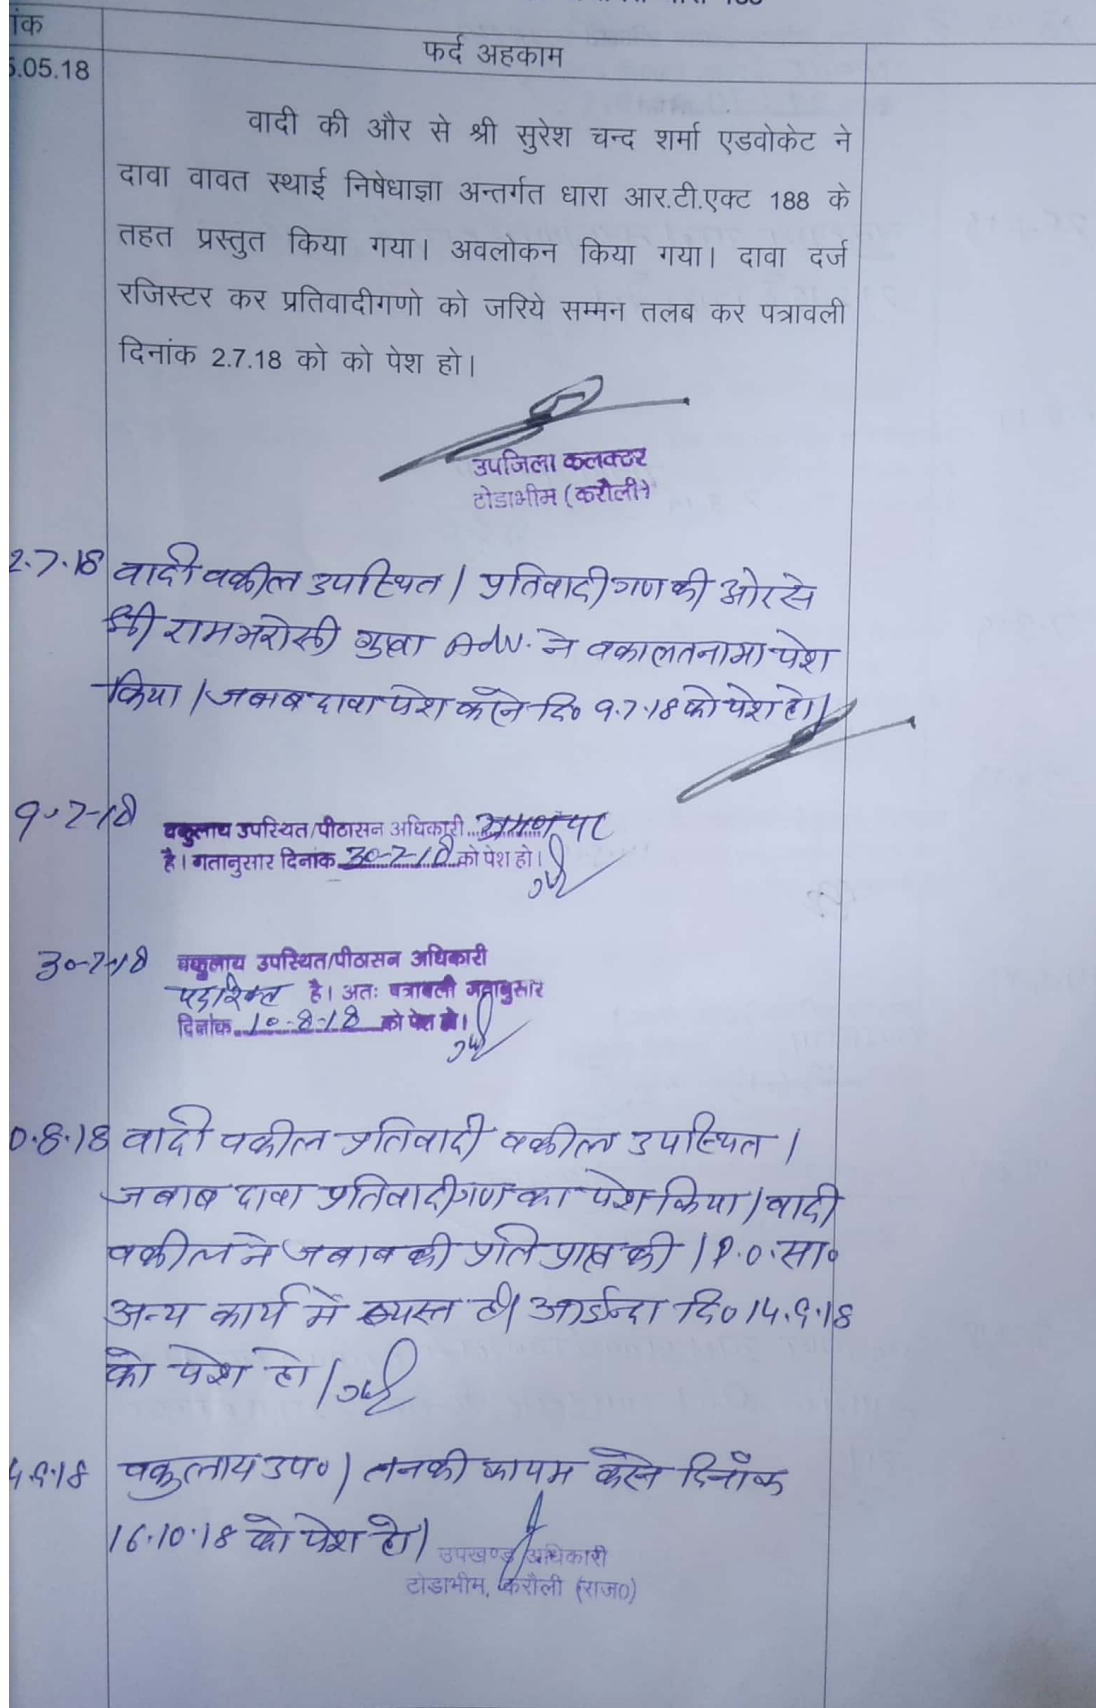 188
ांक
फर्द अहकाम
.05.18
वादी की और से श्री सुरेश चन्द शर्मा एडवोकेट ने
दावा वावत स्थाई निषेधाज्ञा अन्तर्गत धारा आर.टी.एक्ट 188 के
तहत प्रस्तुत किया गया। अवलोकन किया गया। दावा दर्ज
रजिस्टर कर प्रतिवादीगणो को जरिये सम्मन तलब कर पत्रावली
दिनांक 2.7.18 को को पेश हो।
उपजिला कलक्टर
टोडाभीम (करौली)
2.7.18 वादी वकील उपस्थित। प्रतिवादीगण की ओर से
श्री रामभरोसी गुप्ता Adv. ने वकालतनामा पेश
किया। जबाब दावा पेश करने दि० 9.7.18 को पेश हो।
9-7-18 वकुलाय उपस्थित/पीठासन अधिकारी भ्रमण पर
है। गतानुसार दिनांक 30-7-18 को पेश हो।
30-7-18 वकुलाय उपस्थित/पीठासन अधिकारी
पदरिक्त है। अतः पत्रावली गतानुसार
दिनांक 10-8-18 को पेश हो।
0.8.18 वादी वकील प्रतिवादी वकील उपस्थित।
जबाब दावा प्रतिवादीगण का पेश किया। वादी
वकील ने जबाब की प्रति प्राप्त की। P.O. सा०
अन्य कार्य में व्यस्त है। आईन्दा दि० 14.9.18
को पेश हो।
4.9.18 वकुलाय उप०। तनकी कायम करने दिनाँक
16.10.18 को पेश हो।
उपखण्ड अधिकारी
टोडाभीम, करौली (राज०)